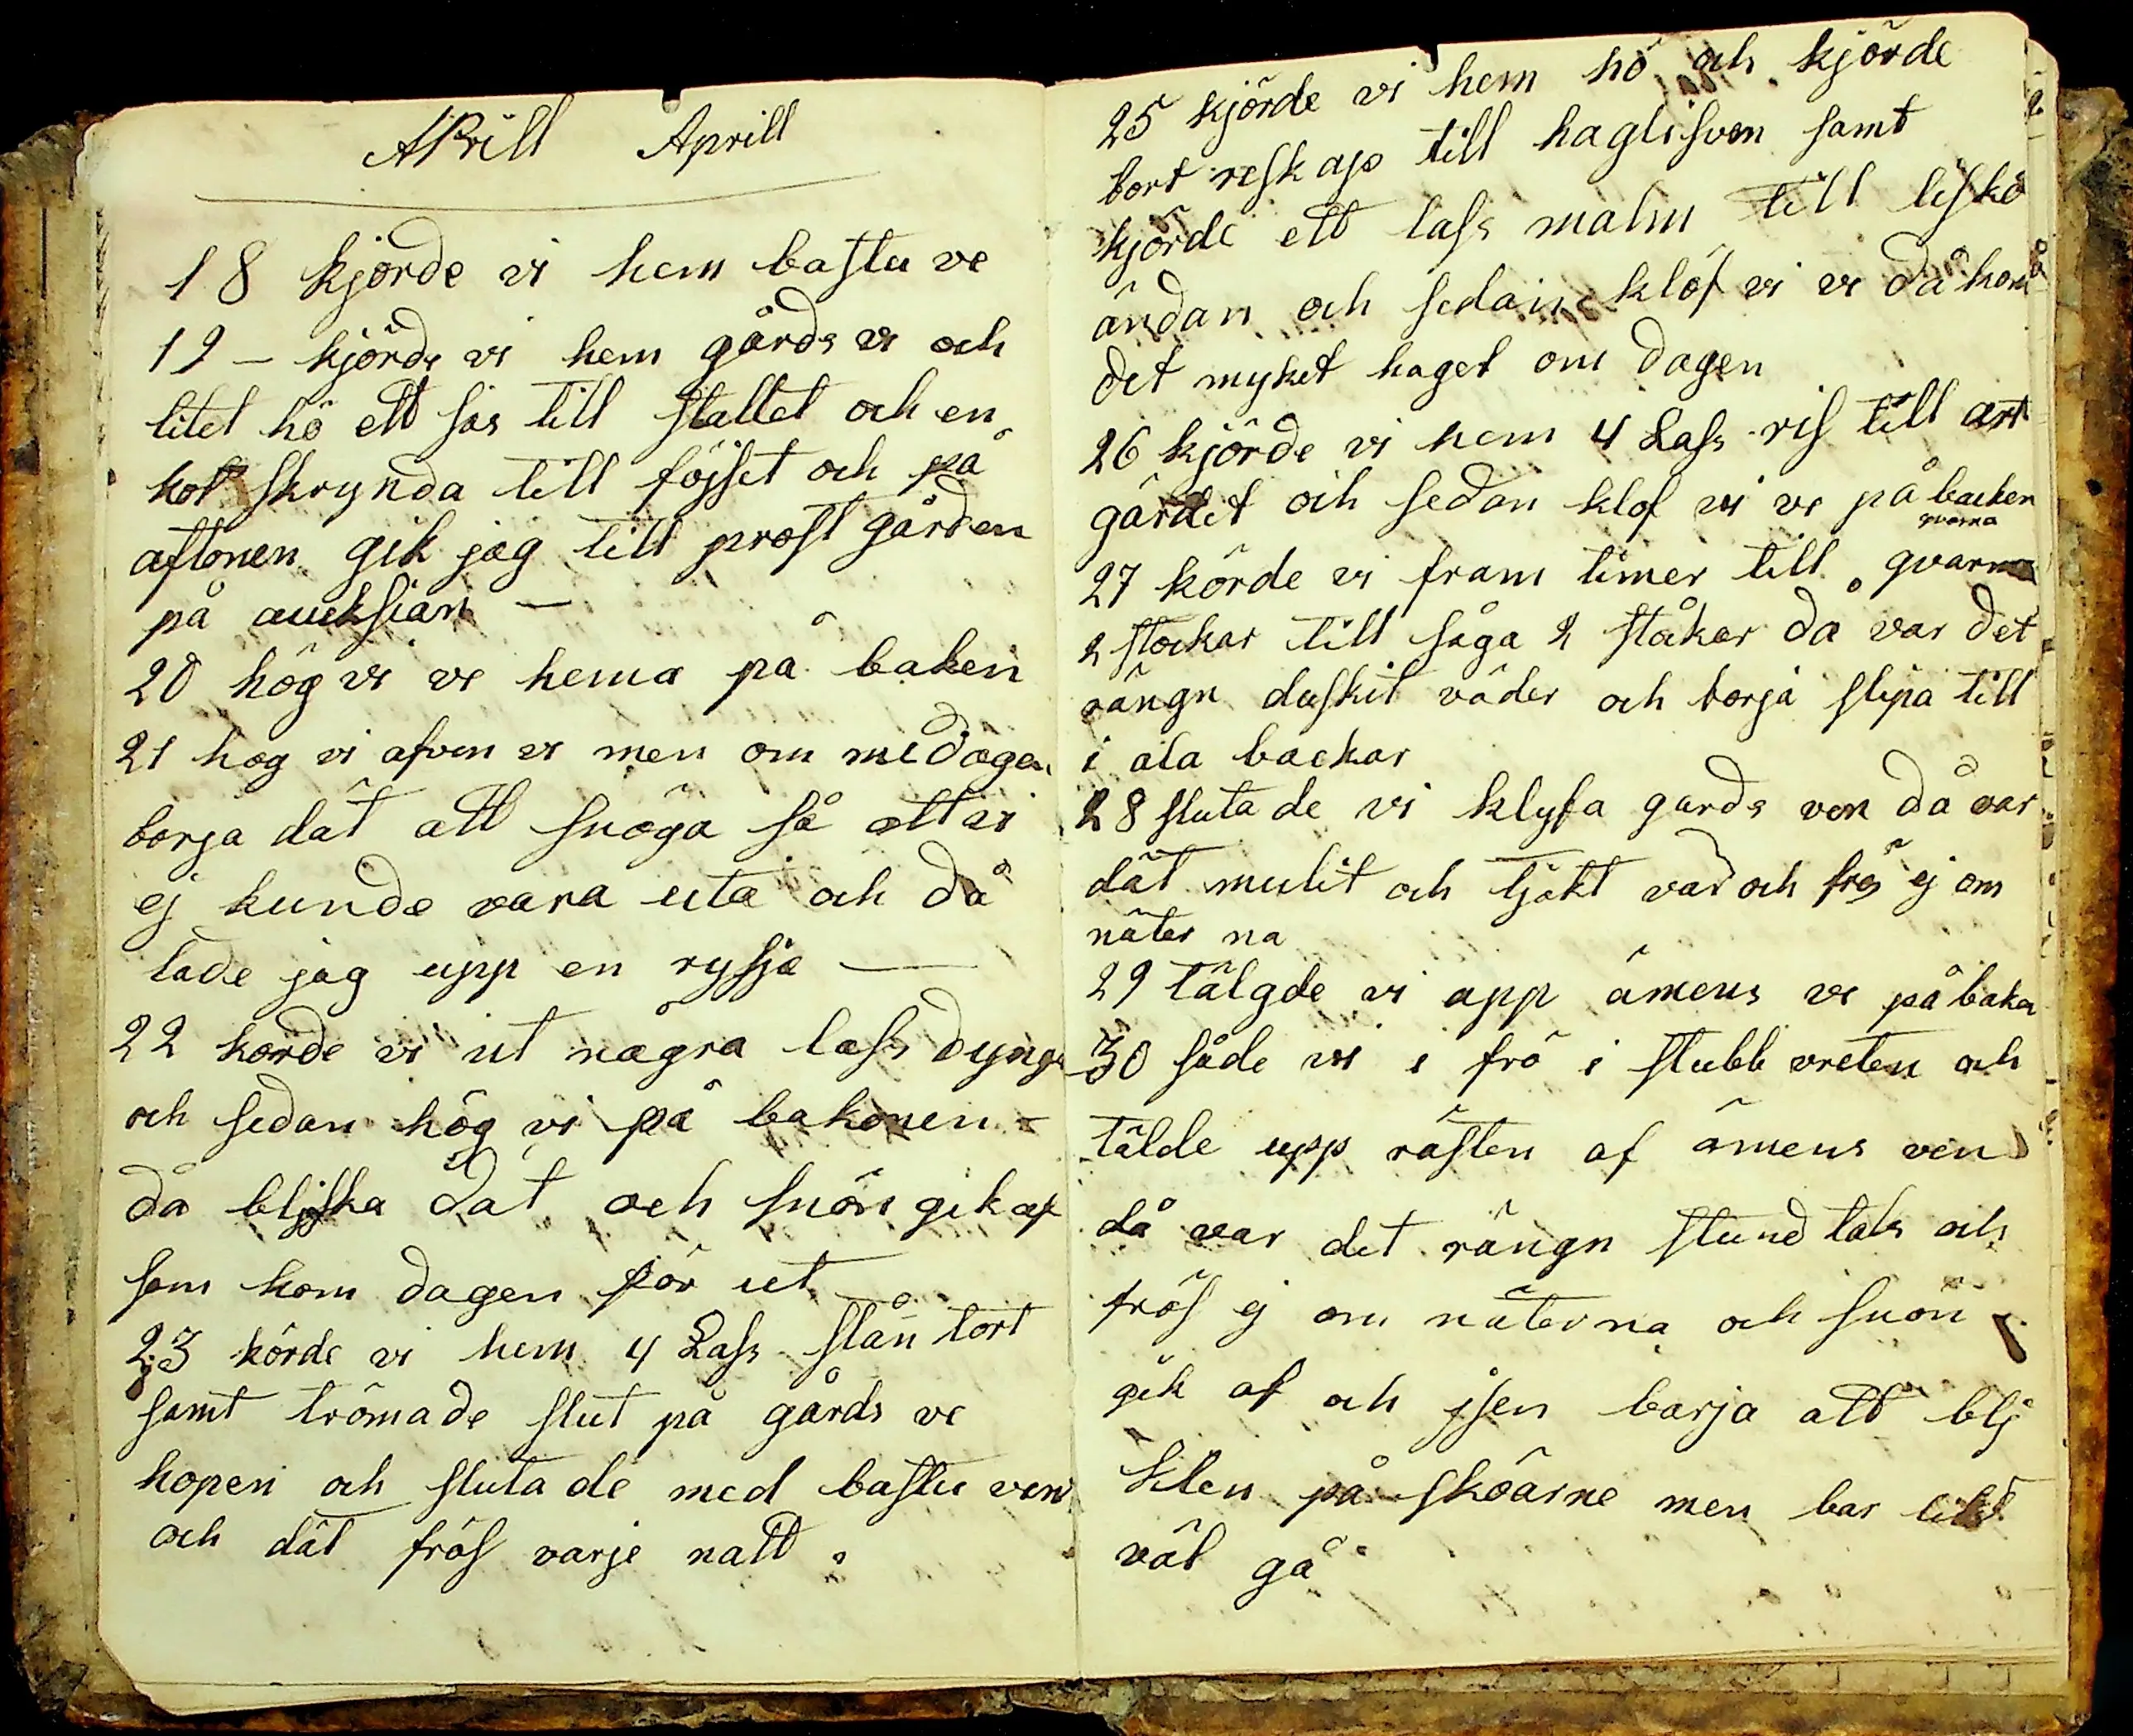 APrill Aprill
18 kjörde vi hem bastu ve
19 – kjörde vi hem gårds ve och
litet hö ett las till stallet och en
kol skrynda till föjset och på
aftonen gik jag till prost gården
på aucksian –
20 hög vi ve hema på baken
21 hog vi afven ve men om medagen
borja dät att snöga så att vi
ej kunde vara uta och då
lade jag upp en rysja —
22 korde vi ut några lass dynga
och sedan hög vi på bakonen –
då bljska dät och snön gik af
som kom dagen för ut
23 körde vi hem 4 Lass stån tort
samt trömade slut på gårds ve
hopen och slutade med bastu ven
och dät frös varje natt.
25 kjörde vi hem hö och kjörde
bort reskap till haglisven samt
kjörde ett lass malm till liskö
ändan och sedan klöf vi ve då kom
det myket haget om dagen
26 kjörde vi hem 4 Lass ris till art
gärdet och sedan klof vi ve på backen
qvarna
27 körde vi fram timer till qvarna
2 stockar till såga 2 ståkar då var det
rängn duskit väder och borja slepa till
i ala backar
28 slutade vi klyfa gards ven då var
dät mulit och tjokt var och frös ej om
näter na
29 tälgde vi upp ämens ve på baken
30 såde vi i frö i stubb vreten och
tälde upp rästen af ämens ven
då var det rängn stundtals och
frös ej om näterna och snön
gik af och jsen barja att blj
klen på sköarne men bar likt
väl gå